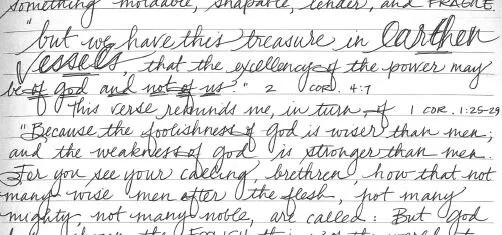 something moldable, shapable, tender, and FRAGILE.
"but we have this treasure in earthen
vessels, that the excellency of the power may
be of god and not of us." 2 cor. 4:7
This verse reminds me, in turn, of 1 COR. 1:25-29
"Because the foolishness of god is wiser than men;
and the weakness of god is stronger than men.
For you see your calling, brethren, how that not
many wise men after the flesh, not many
mighty, not many noble, are called: But god
the FOOLISH